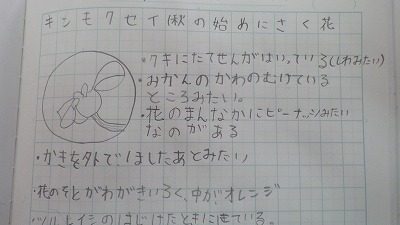 キンモクセイ(秋の始めにさく花
・クキにたてせんがはいっている(しわみたい)
・みかんのかわのむけている
ところみたい。
・花のまんなかにピーナッツみたい
なのがある
・かきを外でほしたあとみたい
・花のそとがわがきいろく、中がオレンジ
・ツルレイシのはじけたときににている。